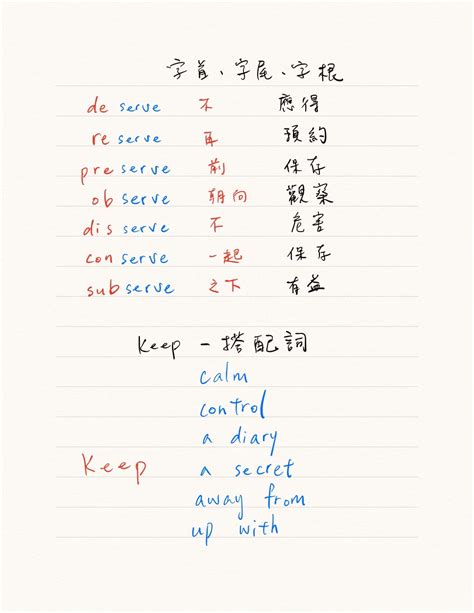 字首、字尾、字根
deserve 不 應得
reserve 再 預約
preserve 前 保存
observe 朝向 觀察
disserve 不 危害
conserve 一起 保存
subserve 之下 有益
Keep - 搭配詞
calm
control
a diary
Keep a secret
away from
up with